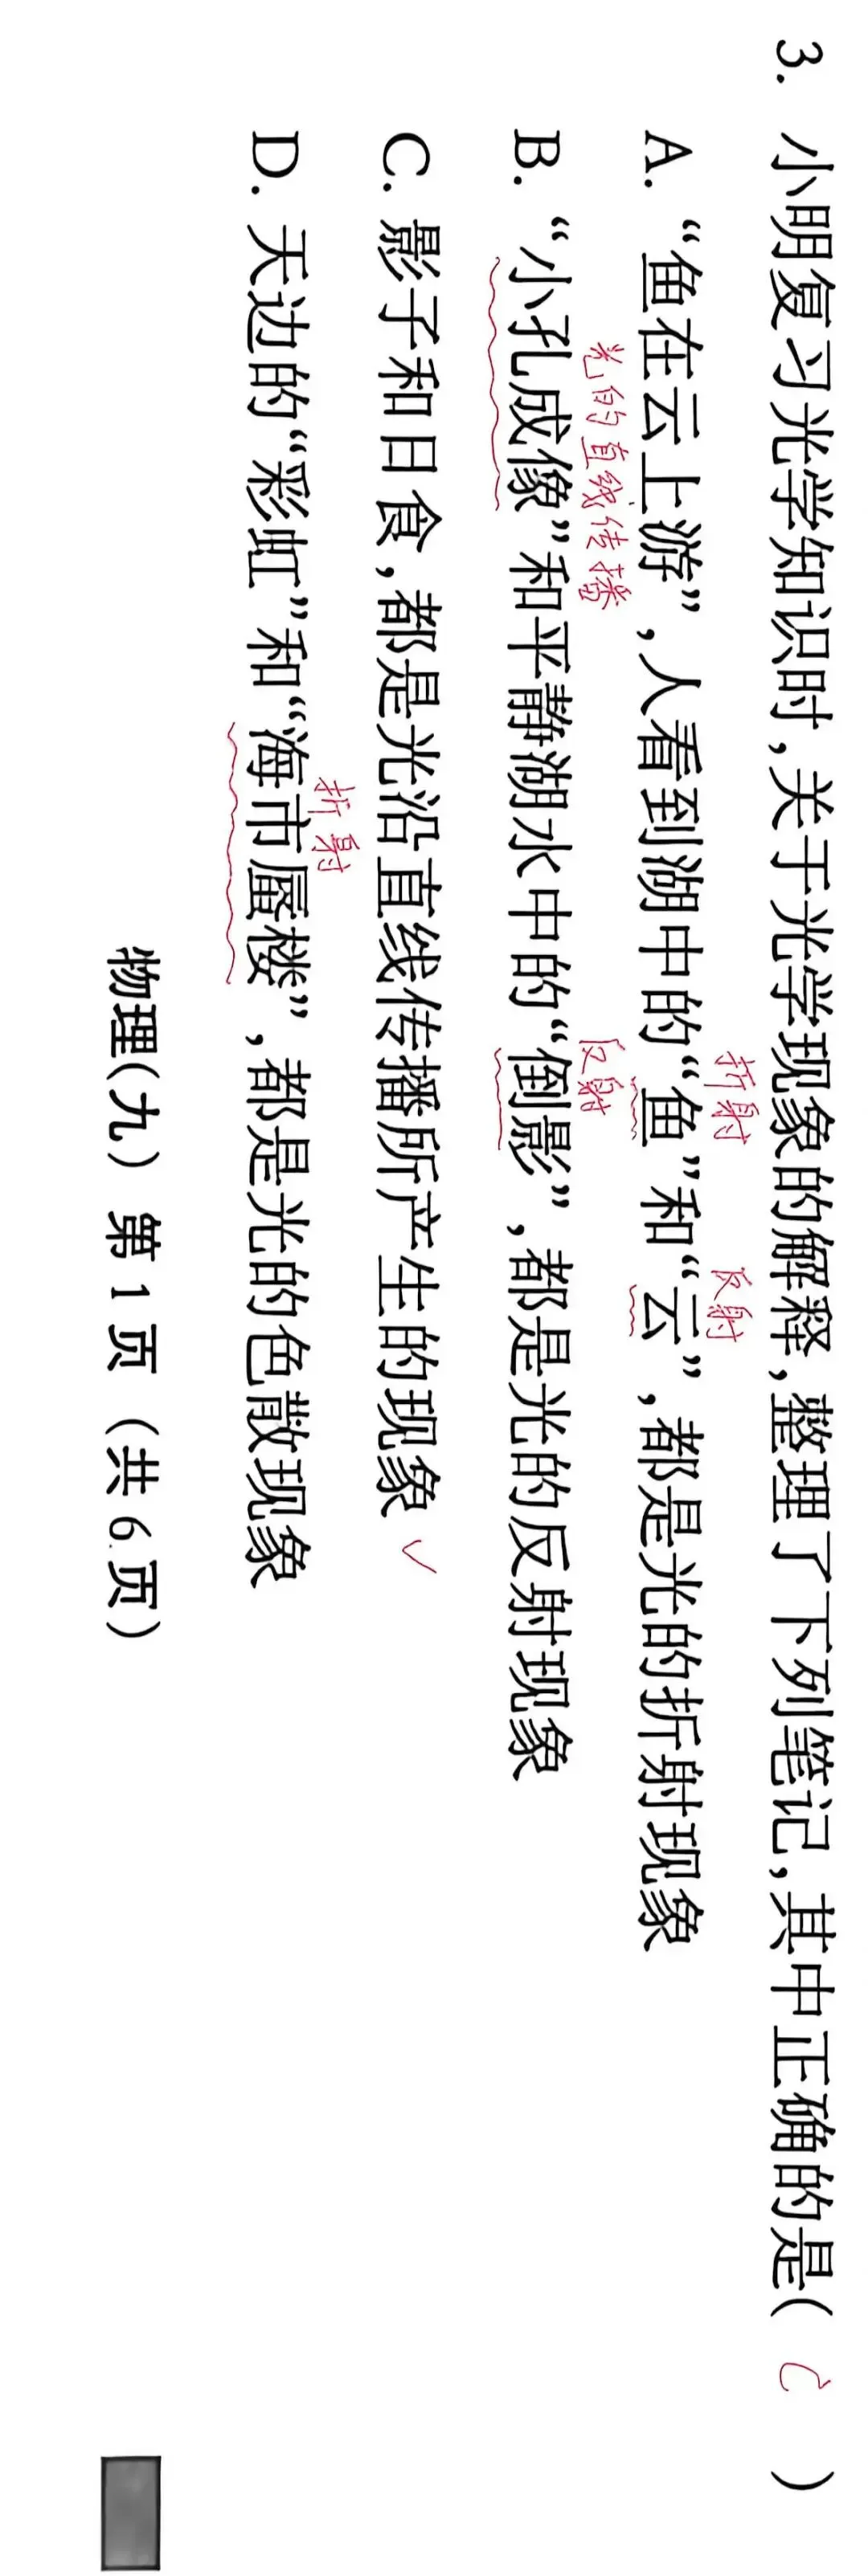 3. 小明复习光学知识时,关于光学现象的解释,整理了下列笔记,其中正确的是( C )
折射 反射
A. “鱼在云上游”,人看到湖中的“鱼”和“云”,都是光的折射现象
光的直线传播 反射
B. “小孔成像”和平静湖水中的“倒影”,都是光的反射现象
C. 影子和日食,都是光沿直线传播所产生的现象 ✓
折射
D. 天边的“彩虹”和“海市蜃楼”,都是光的色散现象
物理(九) 第 1 页 (共 6 页)